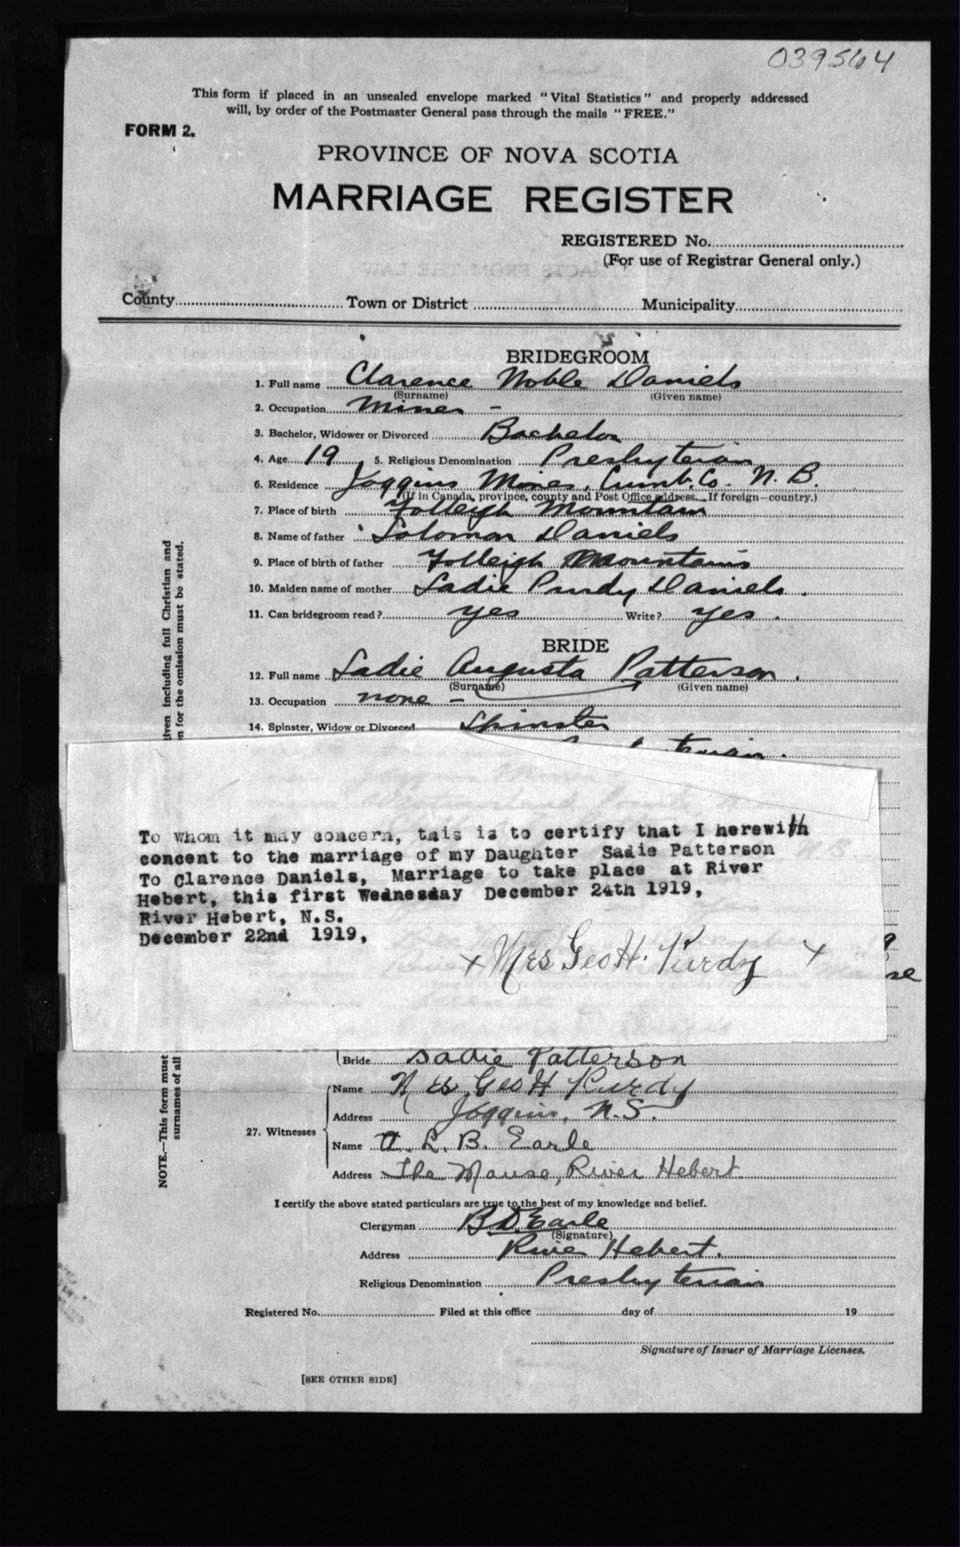 039564
This form if placed in an unsealed envelope marked "Vital Statistics" and properly addressed
will, by order of the Postmaster General pass through the mails "FREE."
FORM 2.
PROVINCE OF NOVA SCOTIA
MARRIAGE REGISTER
REGISTERED No.
(For use of Registrar General only.)
County Town or District Municipality
BRIDEGROOM
1. Full name Clarence Noble Daniels
(Surname) (Given name)
2. Occupation Miner -
3. Bachelor, Widower or Divorced Bachelor
4. Age 19 5. Religious Denomination Presbyterian
6. Residence Joggins Mines, Cumb. Co. N. B.
(If in Canada, province, county and Post Office address. If foreign—country.)
7. Place of birth Folleigh Mountain
8. Name of father Solomon Daniels
9. Place of birth of father Folleigh Mountains
10. Maiden name of mother Sadie Purdy Daniels.
11. Can bridegroom read? yes Write? yes.
BRIDE
12. Full name Sadie Augusta Patterson.
(Surname) (Given name)
13. Occupation none -
14. Spinster, Widow or Divorced Spinster
To whom it may concern, this is to certify that I herewith
concent to the marriage of my Daughter Sadie Patterson
To Clarence Daniels, Marriage to take place at River
Hebert, this first Wednesday December 24th 1919,
River Hebert, N.S.
December 22nd 1919,
x Mrs Geo H. Purdy x
Bride Sadie Patterson
27. Witnesses
Name Mrs Geo H Purdy
Address Joggins, N.S.
Name A. L. B. Earle
Address The Manse, River Hebert
I certify the above stated particulars are true to the best of my knowledge and belief.
Clergyman B D. Earle
(Signature)
Address River Hebert.
Religious Denomination Presbyterian
Registered No. Filed at this office day of 19
Signature of Issuer of Marriage Licenses.
[SEE OTHER SIDE]
NOTE.—This form must
surnames of all
given including full Christian and
for the omission must be stated.